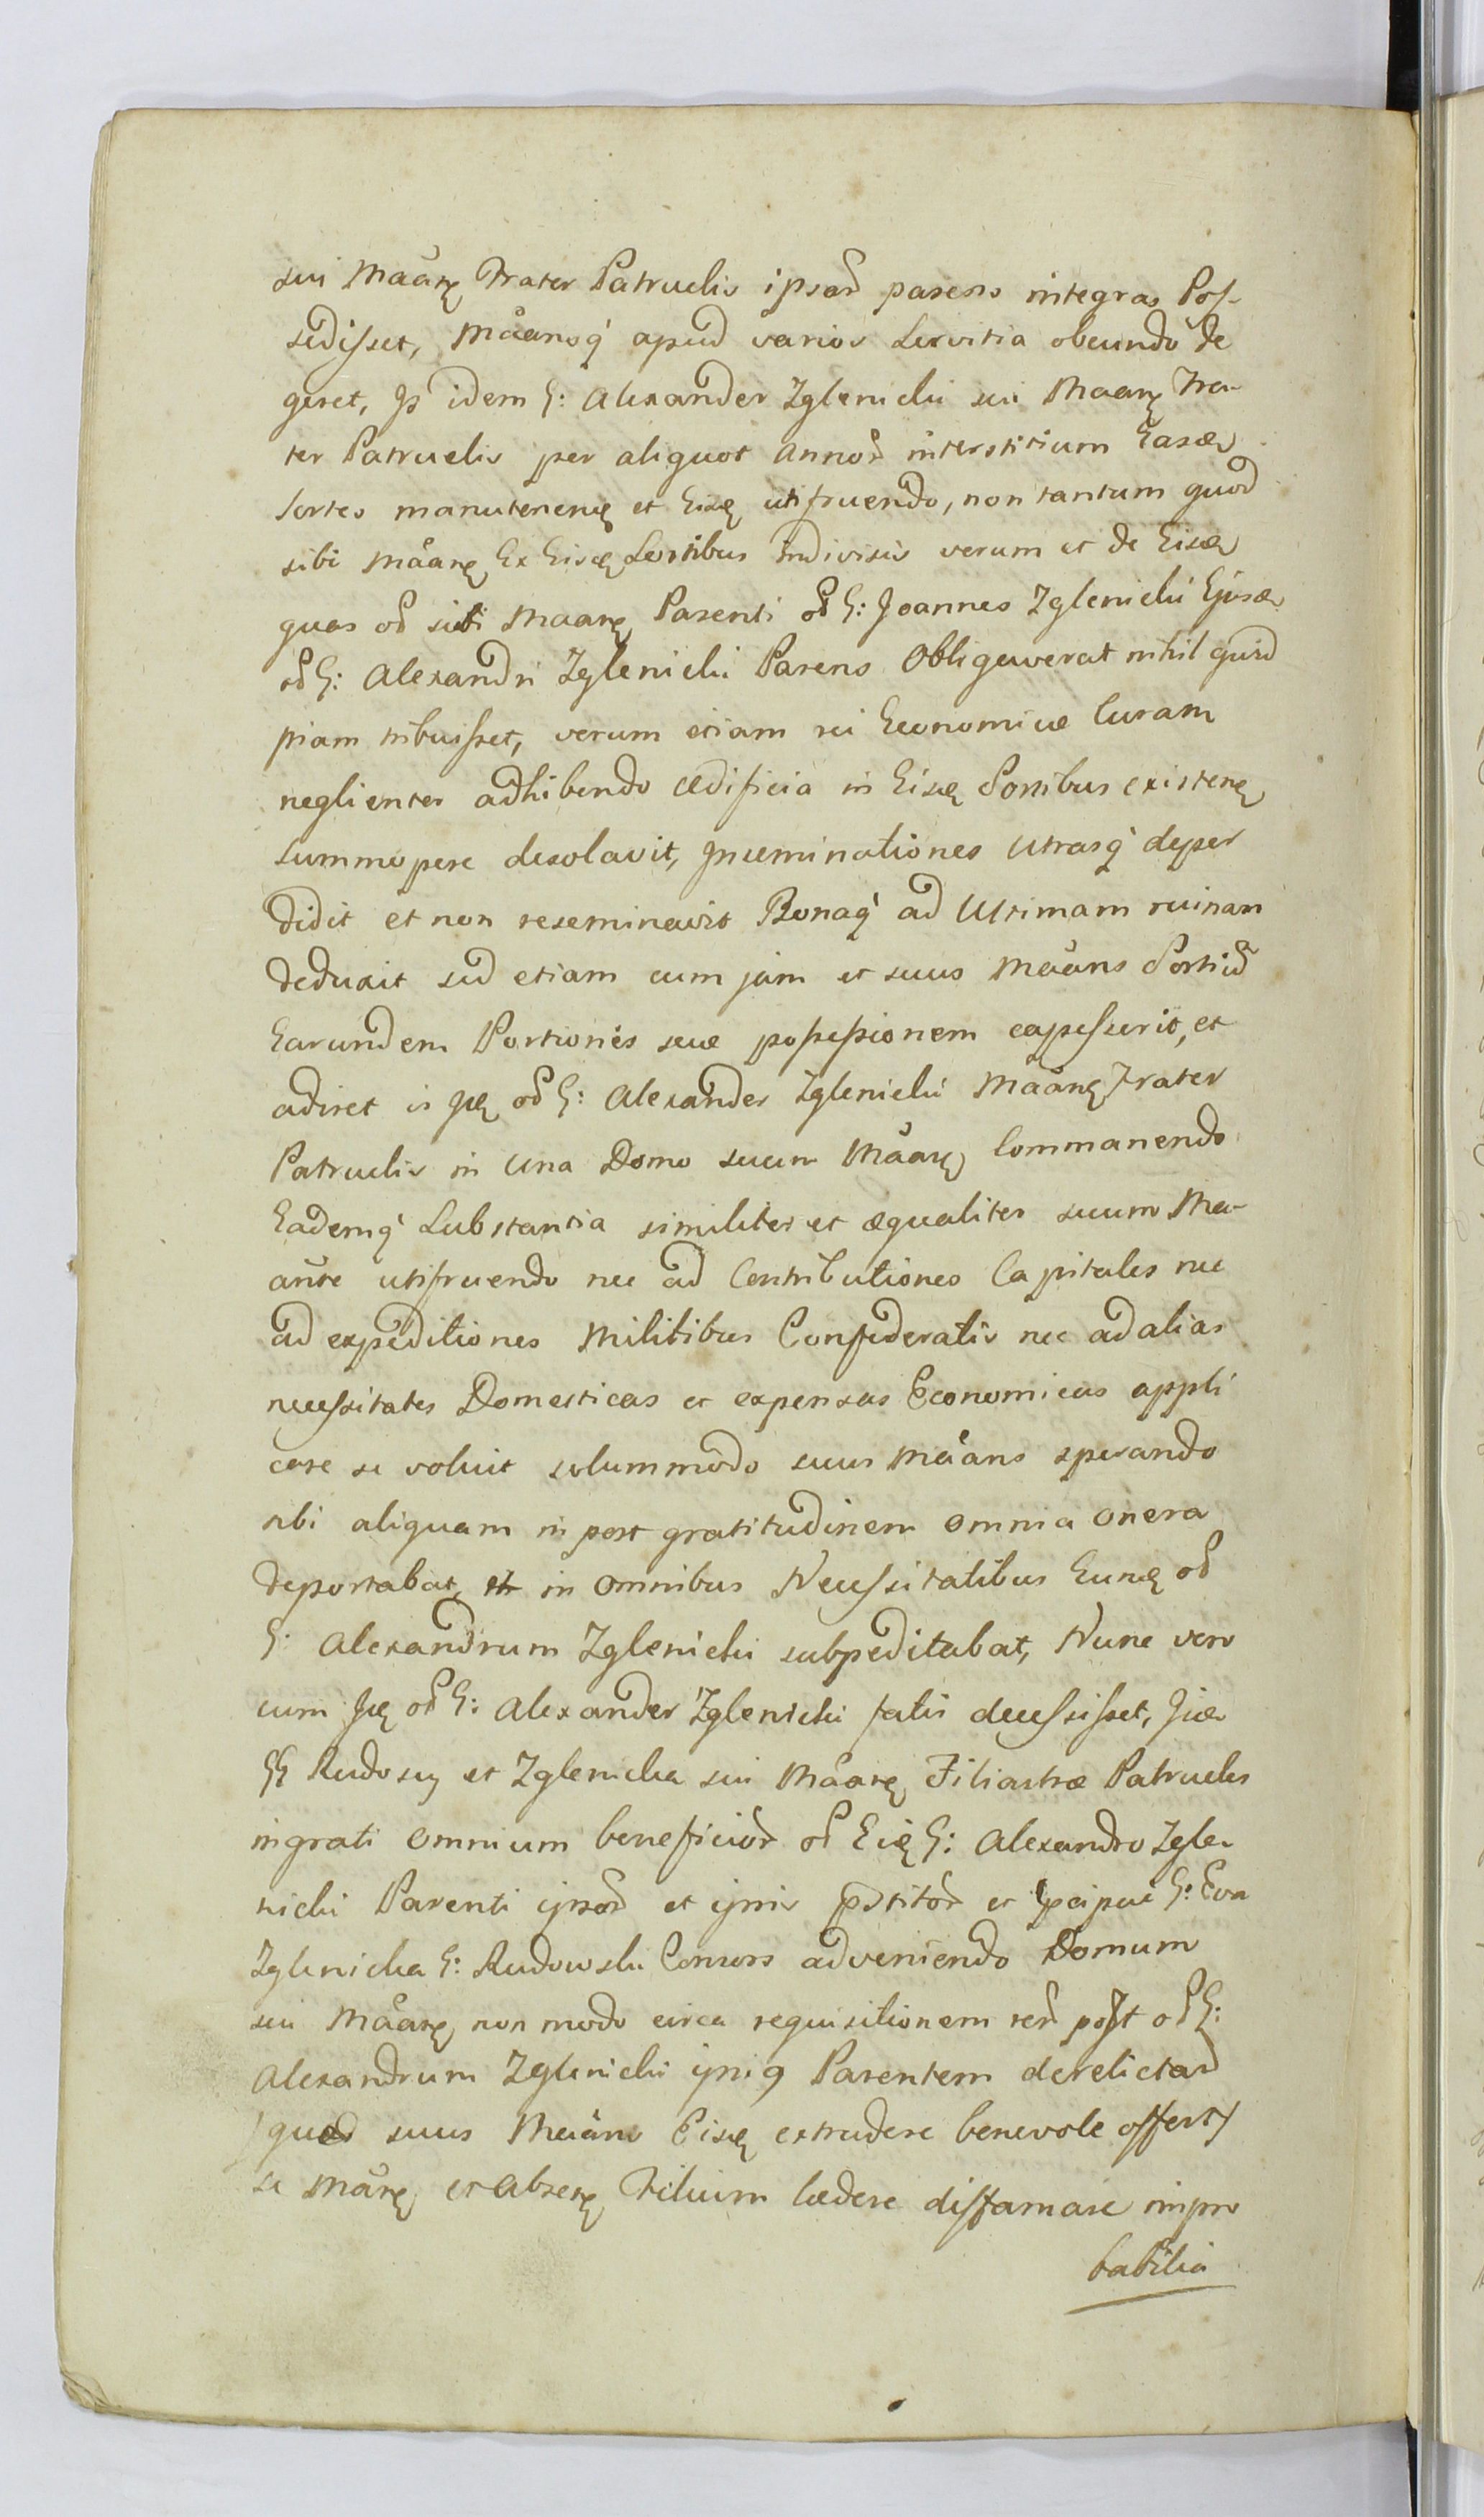 sui Maãnt Frater Patruelis ipsor parens integras Pos-
sedisset, Maansq apud varios servitia obeundo de
geret, Is idem G: Alexander Zglenicki sui Maant Fra-
ter Patruelis per aliquot Annor interstitium Easd
sortes manutenend et Eisd utifruendo, non tantum quod
sibi Maant Ex Eisd Sortibus Indivisis verum et de Eisd
quas od sui Maant Parenti od G: Joannes Zglenicki Ejusd
od G: Alexandri Zglenicki Parens Obligaverat nihil quid
piam tribuisset, verum etiam rei Economicæ Curam
neglienter adhibendo ædificia in Eisd Sortibus existent
summopere desolavit, Inseminationes Utrasq deper
didit et non reseminavit Bonaq ad Ultimam ruinam
deduxit sed etiam cum jam et suus Maans Sortium
Earundem Portionis suæ possessionem capesserit, et
adiret is Id od G: Alexander Zglenicki Maant Frater
Patruelis in Una Domo suum Maant Commanendo
Eademq Substantia similiter et æqualiter suum Ma-
ante utifruendo nec ad Contributiones Capitales nec
ad expeditiones Militibus Confederatis nec ad alias
necessitates Domesticas et expensas Economicas appli
care se voluit solummodo suus Maans sperando
sibi aliquam in post gratitudinem omnia onera
deportabat, et in omnibus Necessitatibus Eund od
G: Alexandrum Zglenicki subpeditabat, Nunc vero
cum Id od G: Alexander Zglenicki fatis decessisset, Iid
GG Rudowscy et Zglenicka sui Maant Filiastræ Patrueles
ingrati omnium beneficior od Eid G: Alexandro Zgle-
nicki Parenti ipsor et ipsis pstitor et pcipue G: Eva
Zglenicka G: Rudowski Consors adveniendo Domum
sui Maant non modo circa requisitionem rer post od G:
Alexandrum Zglenicki ipsiq Parentem derelictar
(quas suus Maans Eisd extradere benevole offert)
se Mant et Absent Filium lædere diffamare impro
babilia